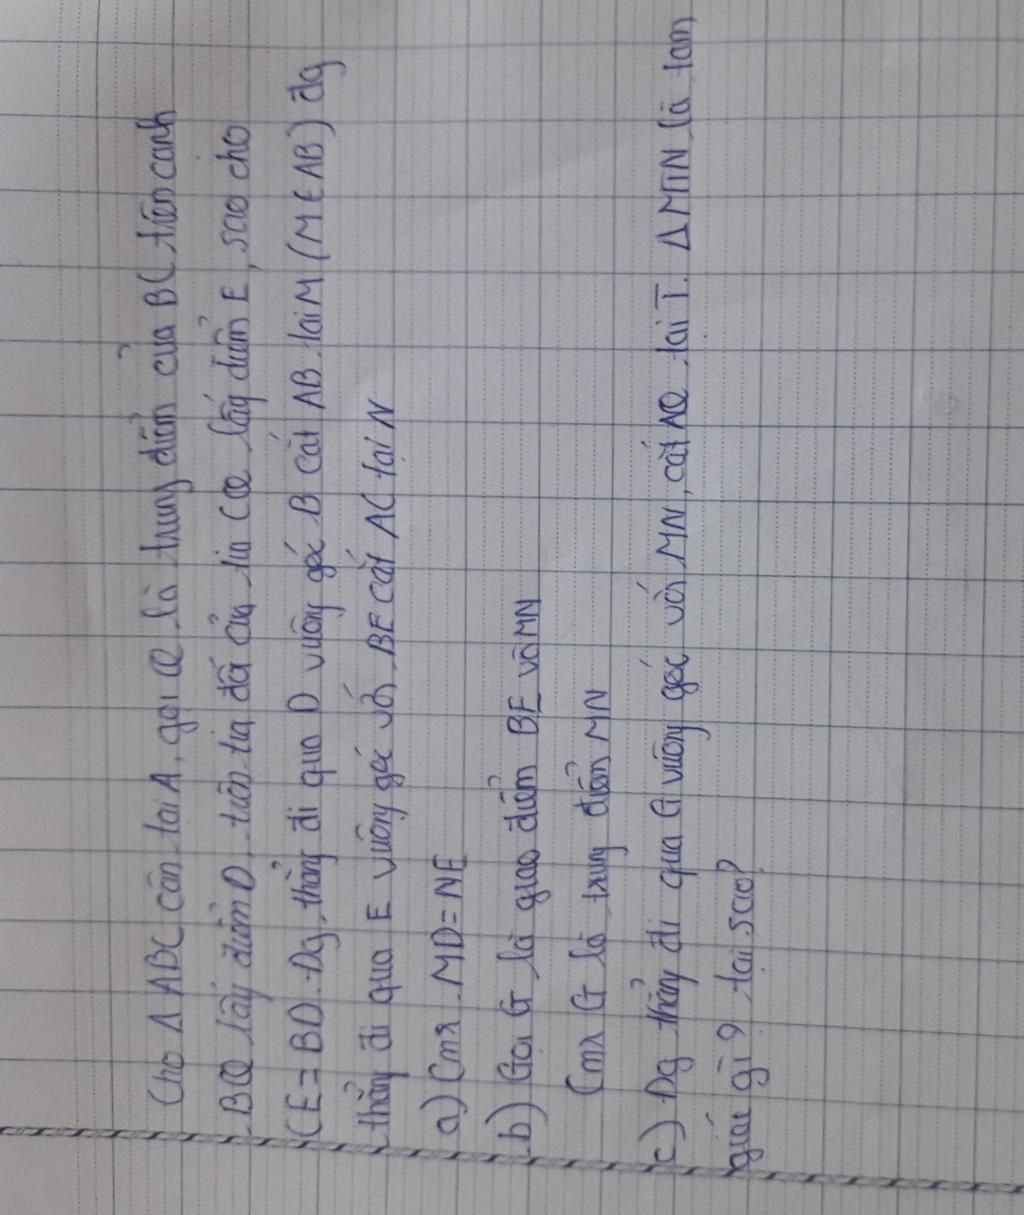 Cho Δ ABC cân tại A, gọi Q là trung điểm của BC trên cạnh
BQ lấy điểm D, trên tia đối của tia CQ lấy điểm E, sao cho
CE = BD. Đg thẳng đi qua D vuông góc B cắt AB tại M (M ∈ AB) đg
thẳng đi qua E vuông góc với BE cắt AC tại N
a) Cmr MD = NE
b) Gọi G là giao điểm BE và MN
Cmr G là trung điểm MN
c) Đg thẳng đi qua G vuông góc với MN, cắt AQ tại I. Δ MIN là tam
giác gì? tại sao?